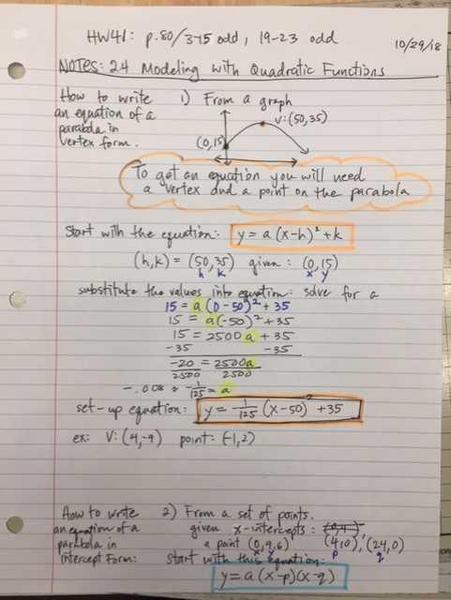 HW41: p.80/3-15 odd, 19-23 odd 10/29/18
NOTES: 2.4 Modeling with Quadratic Functions
How to write 1) From a graph
an equation of a V:(50,35)
parabola in
vertex form. (0,15)
To get an equation you will need
a vertex and a point on the parabola
Start with the equation: y = a(x-h)² + k
(h,k) = (50,35) given: (0,15)
h k x y
substitute the values into equation: solve for a
15 = a(0-50)² + 35
15 = a(-50)² + 35
15 = 2500a + 35
-35 -35
-20 = 2500a
2500 2500
-.008 = -1/125 = a
set-up equation: y = -1/125 (x-50)² + 35
ex: V:(4,-9) point: (-1,2)
How to write 2) From a set of points.
an equation of a given x-intercepts: (4,0), (24,0)
parabola in a point (0,9.6) p q
intercept form: Start with this equation:
y = a(x-p)(x-q)